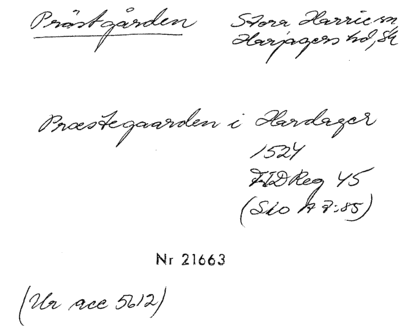 Prästgården Stora Harrie sn
Harjagers hd, Sk
Præstegaarden i Hardager
1524
FIDReg 45
(Sko A 7:85)
Nr 21663
(Ur acc 5612)